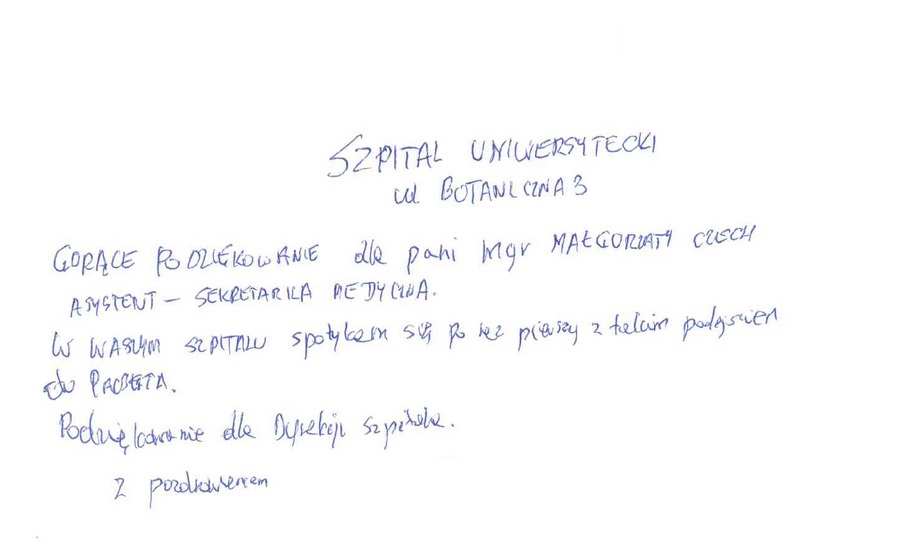 SZPITAL UNIWERSYTECKI
ul BOTANICZNA 3
GORĄCE PODZIĘKOWANIE dla pani mgr MAŁGORZATY CZECH
ASYSTENT – SEKRETARKA MEDYCZNA.
W WASZYM SZPITALU spotykam się po raz pierwszy z takim podejściem
do PACJENTA.
Podziękowanie dla Dyrekcji szpitala.
Z pozdrowieniem